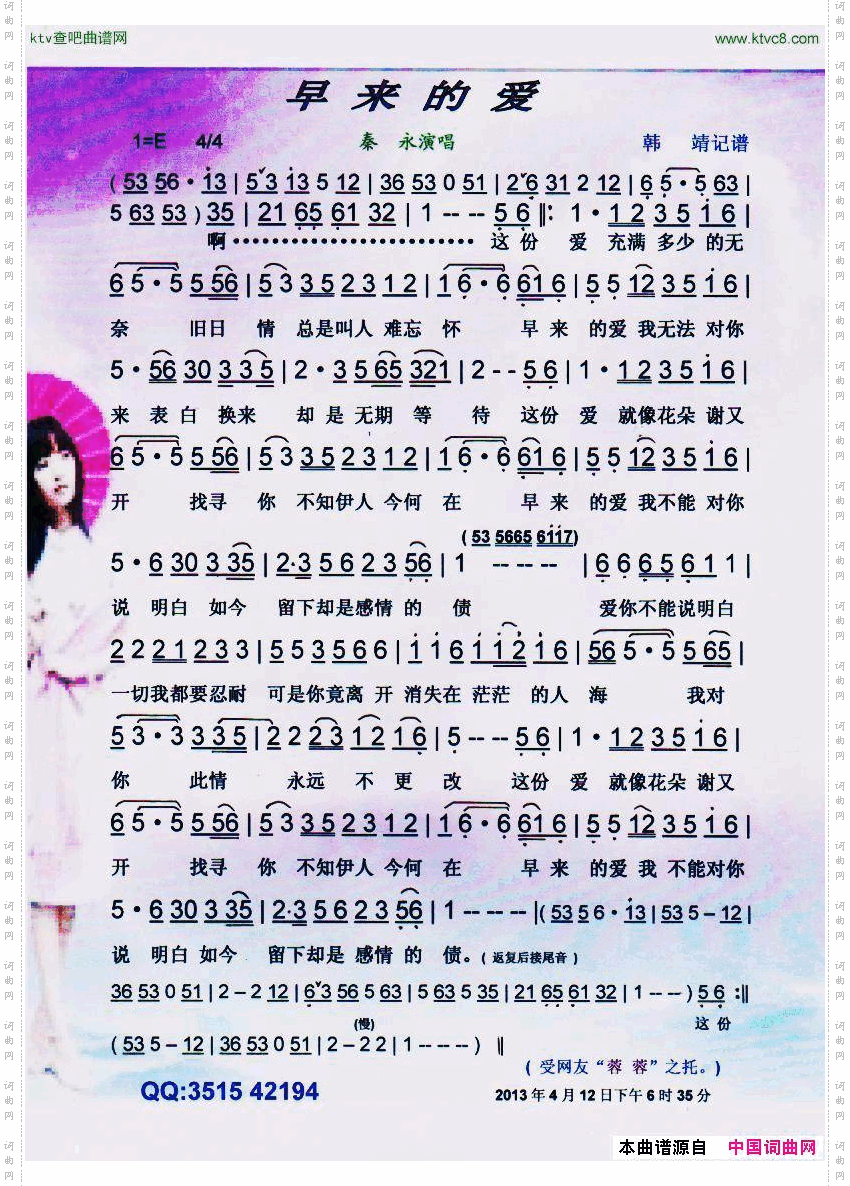 ktv查吧曲谱网 www.ktvc8.com
早来的爱
1=E 4/4 秦 永演唱 韩 靖记谱
( 53 56 · 13 | 5 3 13 5 12 | 36 53 0 51 | 2 6 31 2 12 | 6 5 · 5 63 |
5 63 53 ) 35 | 21 65 61 32 | 1 - - - 5 6 ‖: 1 · 12 35 16 |
啊························ 这份 爱 充满 多少 的无
65 · 5 5 56 | 53 35 23 12 | 16 · 6 61 6 | 55 12 35 16 |
奈 旧日 情 总是叫人 难忘 怀 早 来 的爱 我无法 对你
5 · 56 30 335 | 2 · 3 565 321 | 2 - - 56 | 1 · 12 35 16 |
来 表白 换来 却 是 无期 等 待 这份 爱 就像花朵 谢又
65 · 5 5 56 | 53 35 23 12 | 16 · 6 61 6 | 55 12 35 16 |
开 找寻 你 不知伊人 今何 在 早 来 的爱 我不能 对你
( 53 5665 6117)
5 · 6 30 3 35 | 2·3 56 23 56 | 1 --- --- | 66 65 61 1 |
说 明白 如今 留下却是感情 的 债 爱你不能说明白
22 21 23 3 | 55 35 66 | 11 61 112 16 | 56 5 · 5 5 65 |
一切我都要忍耐 可是你竟离 开 消失在 茫茫 的人 海 我对
53 · 3 3 35 | 22 23 12 16 | 5 - - - 56 | 1 · 12 35 16 |
你 此情 永远 不 更 改 这份 爱 就像花朵 谢又
65 · 5 5 56 | 53 35 23 12 | 16 · 6 61 6 | 55 12 35 16 |
开 找寻 你 不知伊人 今何 在 早 来 的爱 我 不能对你
5 · 6 30 3 35 | 2·3 56 23 56 | 1 - - - |( 53 5 6 · 13 | 53 5 – 12 |
说 明白 如今 留下却是 感情 的 债。( 返复后接尾音 )
36 53 0 51 | 2 – 2 12 | 6 3 56 5 63 | 5 63 5 35 | 21 65 61 32 | 1 - - - ) 56 :‖
(慢) 这 份
( 53 5 – 12 | 36 53 0 51 | 2 – 2 2 | 1 - - - - ) ‖
( 受网友“蓉 蓉”之托。)
QQ:3515 42194 2013 年 4 月 12 日下午 6 时 35 分
本曲谱源自 中国词曲网